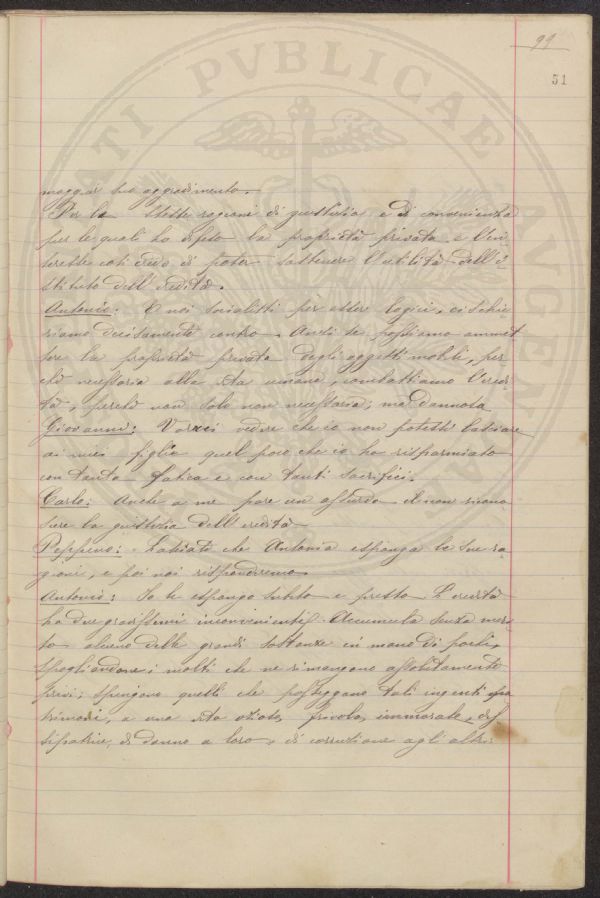 99
51
maggior suo aggradimento.
Per le stesse ragioni di giustizia e di convenienza
per le quali ho difeso la proprietà privata e l'in-
teresse così credo di poter sostenere l'utilità dell'i-
stituto dell'eredità.
Antonio: E noi socialisti per essere logici, ci schie-
riamo decisamente contro. Anche se possiamo ammet-
tere la proprietà privata degli oggetti mobili, per-
chè necessaria alla vita umana, combattiamo l'eredi-
tà, perchè non solo non necessaria, ma dannosa
Giovanni: Vorrei vedere che io non potessi lasciare
ai miei figli quel poco che io ho risparmiato
con tanta fatica e con tanti sacrifici.
Carlo: Anche a me pare un assurdo il non ricono-
scere la giustizia dell'eredità
Peppino: Lasciate che Antonio esponga le sue ra-
gioni, e poi noi risponderemo.
Antonio: Io le espongo subito e presto. L'eredità
ha due gravissimi inconvenienti: Accumula senza meri-
to alcuno delle grandi sostanze in mano di pochi,
spogliandone i molti che ne rimangono assolutamente
privi; spingono quelli che posseggono tali ingenti pa-
trimoni, a una vita oziosa, frivola, immorale, dis-
sipatrice, di danno a loro e di corruzione agli altri:
ATI PVBLICAE AVGENDAE